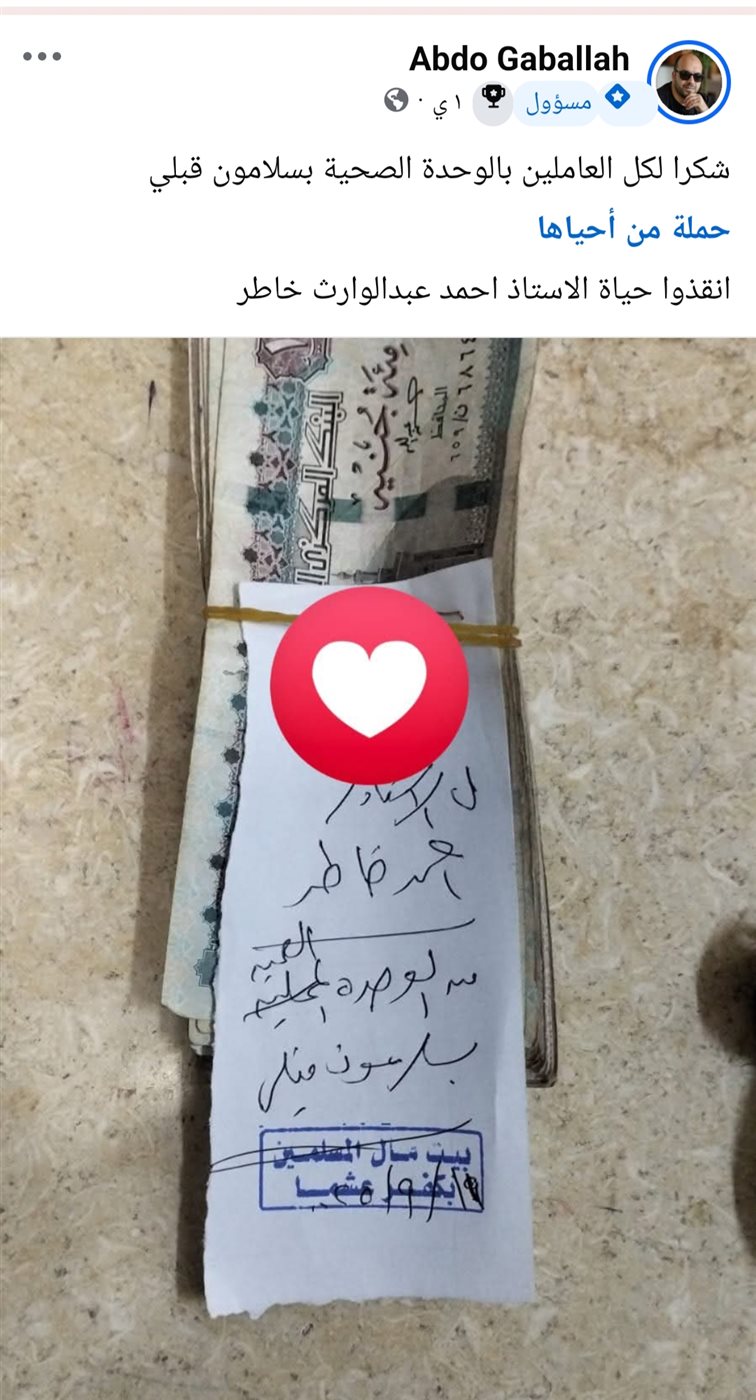 Abdo Gaballah
مسؤول ١ ي
شكرا لكل العاملين بالوحدة الصحية بسلامون قبلي
حملة من أحياها
انقذوا حياة الاستاذ احمد عبدالوارث خاطر
البنك المركزي
مئة جنيه
المحافظ
ل الاستاذ
احمد خاطر
الصحية
من الوحدة المحلية
بسلامون قبلي
بيت مال المسلمين
بكفر عشما